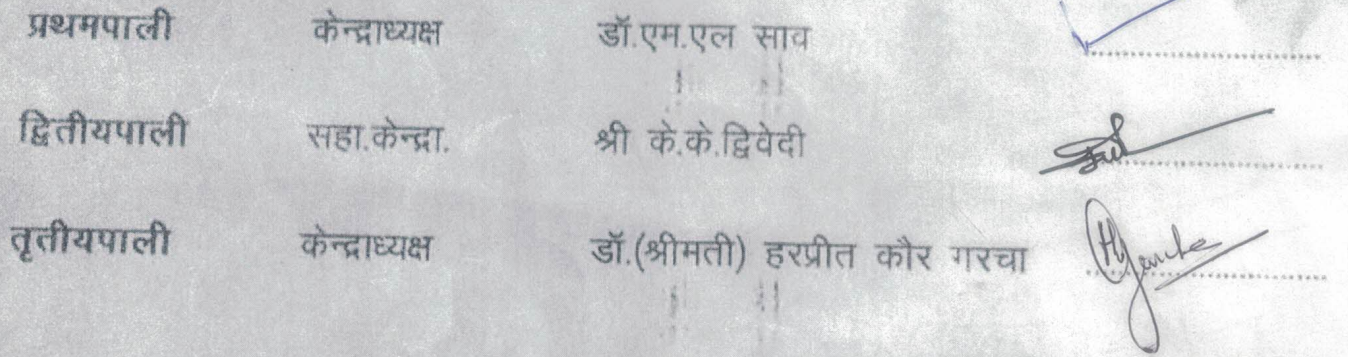 प्रथमपाली केन्द्राध्यक्ष डॉ.एम.एल साव ....................
द्वितीयपाली सहा.केन्द्रा. श्री के.के.द्विवेदी ....................
तृतीयपाली केन्द्राध्यक्ष डॉ.(श्रीमती) हरप्रीत कौर गरचा ....................